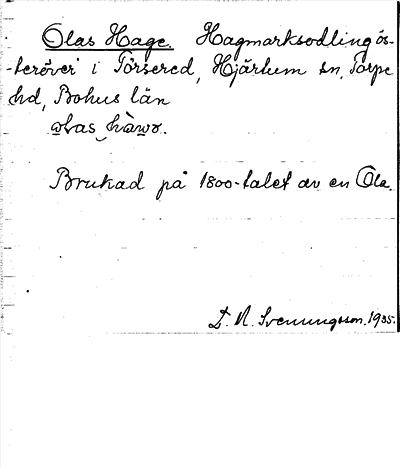 Olas Hage. Hagmarksodling ös-
-teröver i Torsered, Hjärtum sn, Torpe
hd, Bohus län
olas hawo.
Brukad på 1800-talet av en Ola.
D. N. Svenungsson. 1935.